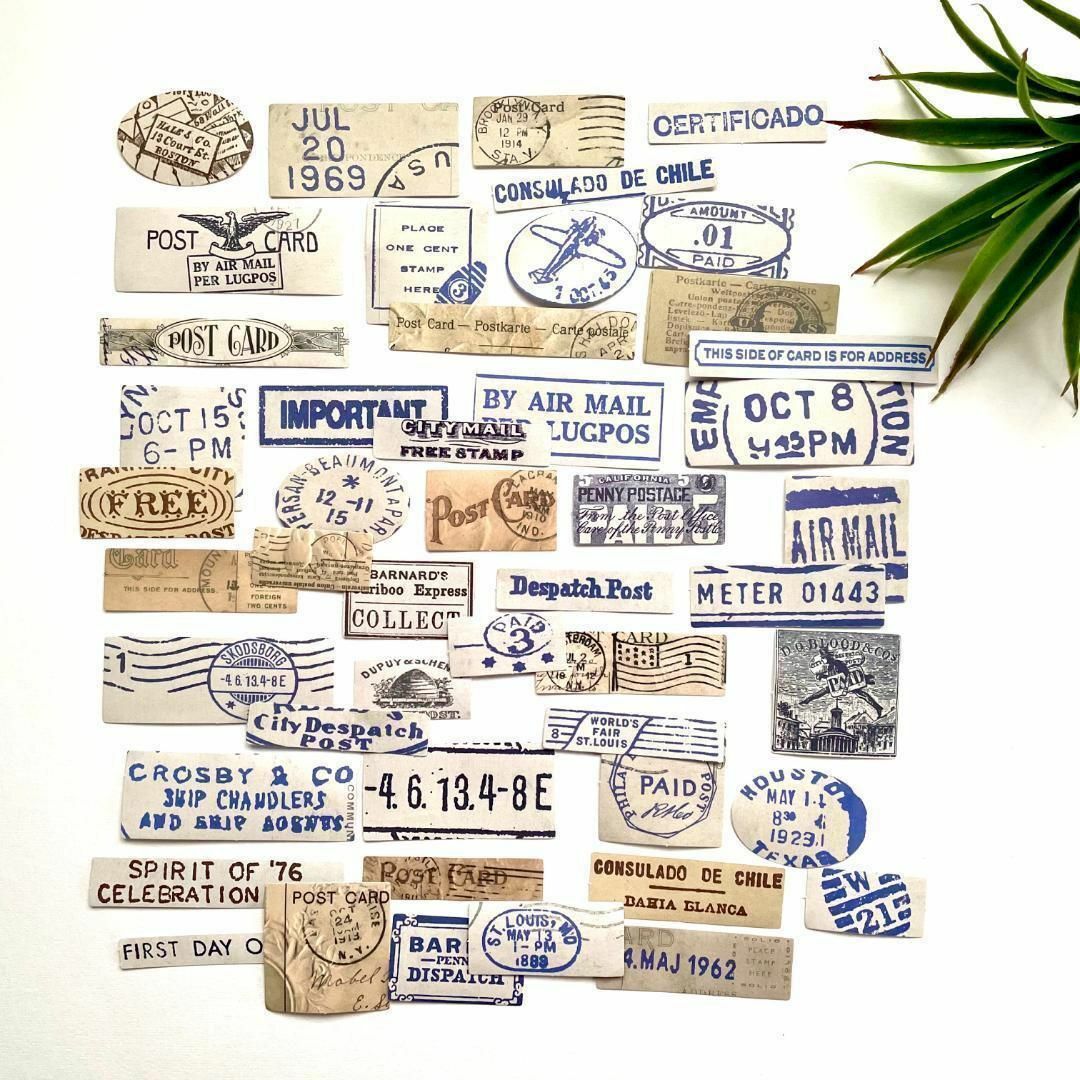 HALE & Co.
13 Court St.
BOSTON
JUL
20
1969
USA
Post Card
BROOKLYN
JAN 29
12 PM
1914
STA. V.
CERTIFICADO
CONSULADO DE CHILE
1927
POST CARD
BY AIR MAIL
PER LUGPOS
PLACE
ONE CENT
STAMP
HERE
3
1 OCT. 45
AMOUNT
.01
PAID
Postkarte — Carte postale
Weltpost
Union postale
POST CARD
Post Card — Postkarte — Carte postale
APR
THIS SIDE OF CARD IS FOR ADDRESS
OCT 15
6- PM
IMPORTANT
BY AIR MAIL
PER LUGPOS
CITY MAIL
FREE STAMP
OCT 8
4 45 PM
FRANKLIN CITY
FREE
DESPATCH POST
PERSAN-BEAUMONT A PAR
12 -11
15
POST CARD
1910
IND.
CALIFORNIA
PENNY POSTAGE
From the Post Office
Care of the Penny Post Co.
PAID
AIR MAIL
Card
THIS SIDE FOR ADDRESS.
FOREIGN
TWO CENTS
BARNARD'S
Cariboo Express
COLLECT
Despatch Post
METER 01443
1
SKODSBORG
-4.6.13.4-8 E
PAID
3
CARD
1
D.O. BLOOD & CO'S
CITY DESPATCH
POST
PAID
DUPUY & SCHEN
POST.
City Despatch
POST
8
WORLD'S
FAIR
ST. LOUIS
CROSBY & CO
SHIP CHANDLERS
AND SHIP AGENTS
-4. 6. 13.4-8 E
PHILA
POST
PAID
HOUSTON
MAY 11
8 30
1923
TEXAS
SPIRIT OF '76
CELEBRATION
POST CARD
CONSULADO DE CHILE
BAHIA BLANCA
W
215
FIRST DAY O
POST CARD
OCT
24
1913
N.Y.
Mabel
E. S
BAR
—PENN
DISPATCH
ST. LOUIS, MO
MAY 13
1- PM
1889
ARD
4. MAJ 1962
PLACE
STAMP
HERE
ADDRESS